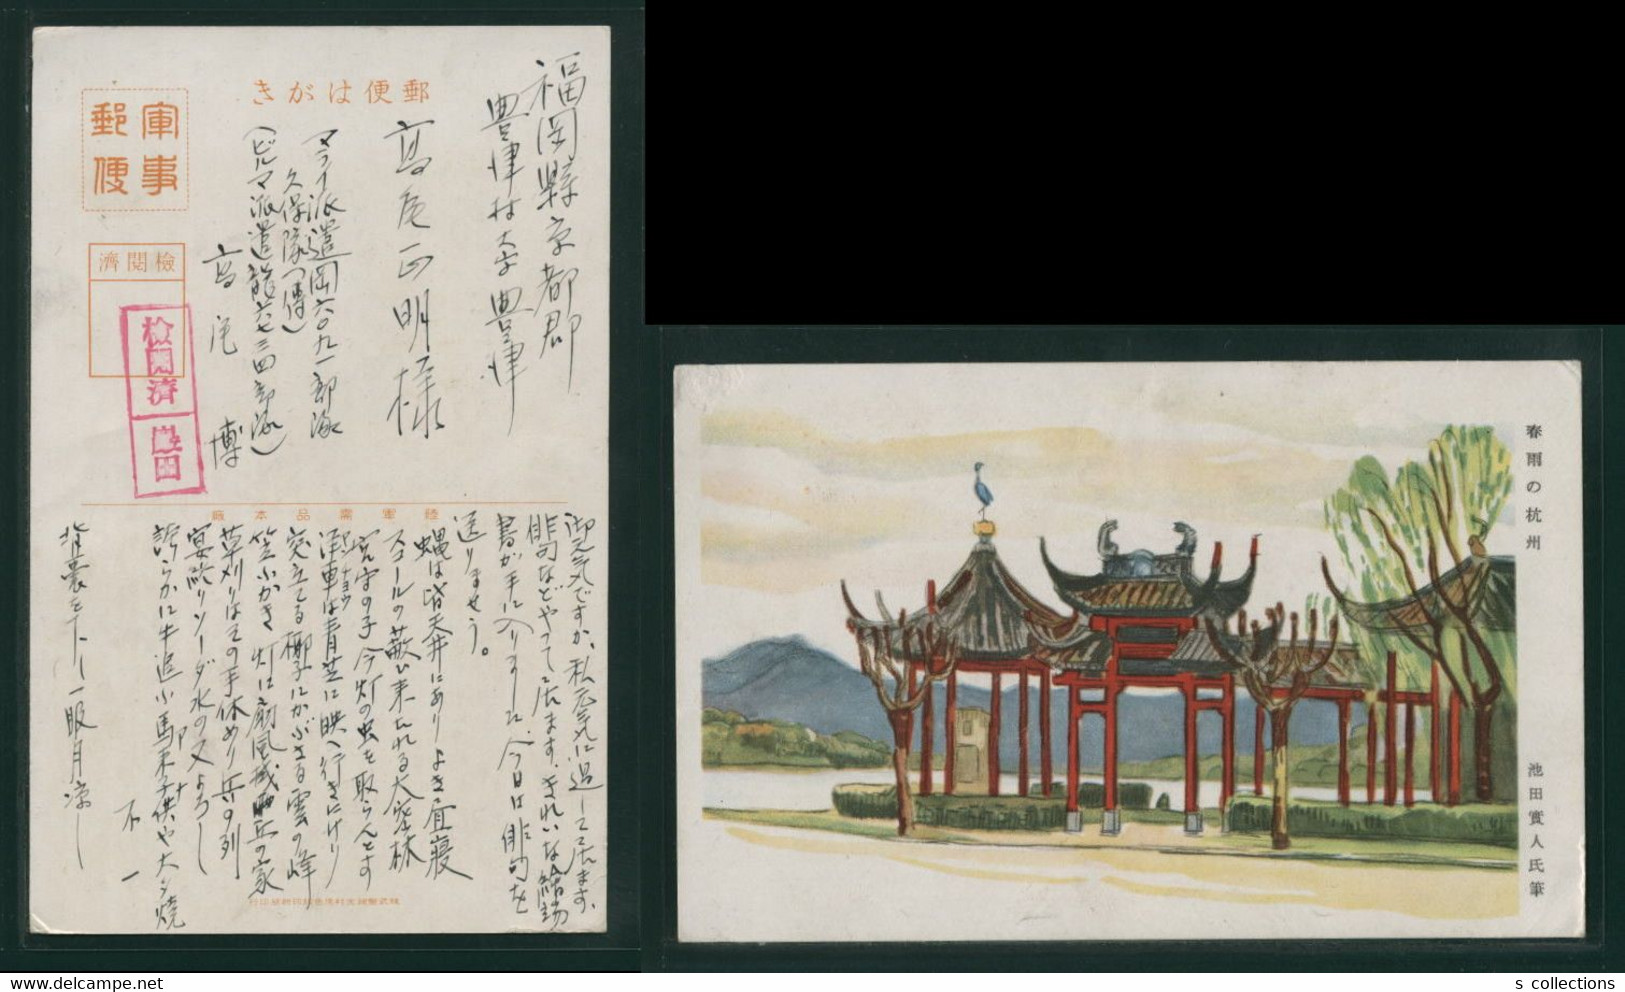 郵便はがき
軍事
郵便
檢閲濟
福岡縣京都郡
豊津村大字豊津
高尾正明様
マライ派遣岡六〇九一部隊
久保隊(傳)
(ビルマ派遣龍六七三四部隊)
高尾博
檢閲濟
陸軍需品本廠
御元気ですか、私元気に過して居ます、
俳句などやって居ます、きれいな絵端
書が手に入りましたので今日は俳句を
送りませう。
蝿は皆天井にあり よき昼寝
スコールの敲い来たれる大密林
留守の子 今灯の虫を取らんとす
洋車は青芝に映へ行きにけり
突立てる椰子にかぶさる雲の峰
笠小かき 灯は扇風機 兵の家
草刈りはその手休めり 兵の列
宴終り ソーダ水の又よろし
誇らかに牛追小馬来 子供や大夕焼
背嚢を下し一服月涼し
不一
春雨の杭州
池田實人氏筆
s collections